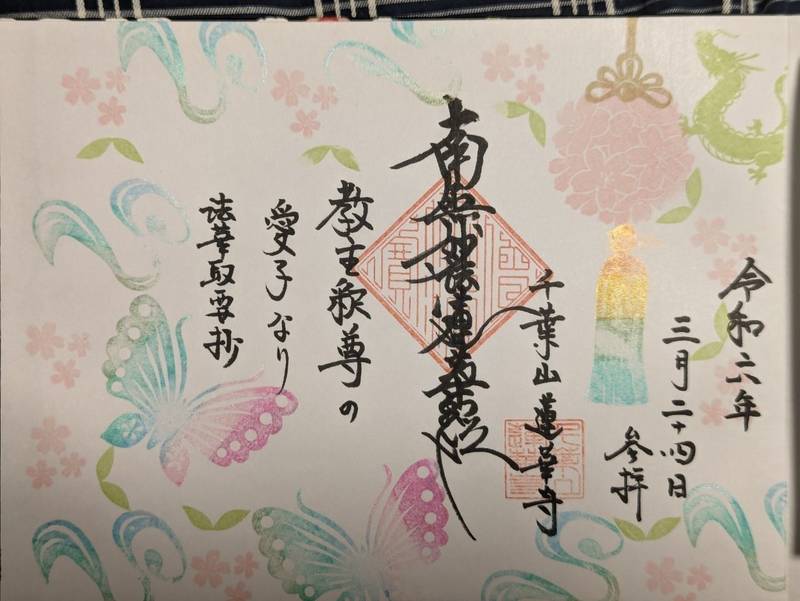 令和六年
三月二十四日
参拝
千葉山蓮華寺
南無妙法蓮華経
教主釈尊の
愛子なり
法華取要抄